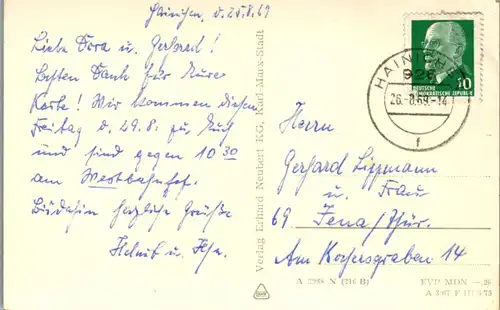 Hainichen, d. 25.8.69
Liebe Dora u. Gerhard!
Besten Dank für Eure
Karte! Wir kommen diesen
Freitag d. 29.8. zu Euch
und sind gegen 10 30
am Westbahnhof.
Bis dahin herzliche Grüße
Helmut u.
Verlag Erhard Neubert KG, Karl-Marx-Stadt
HAINICHEN
920
26.-8.69.-14
f
10
DEUTSCHE
DEMOKRATISCHE REPUBLIK
Herrn
Gerhard Lippmann
u. Frau
69 Jena/Thür.
Am Kochersgraben 14
A 2988 N (216 B)
EVP MDN